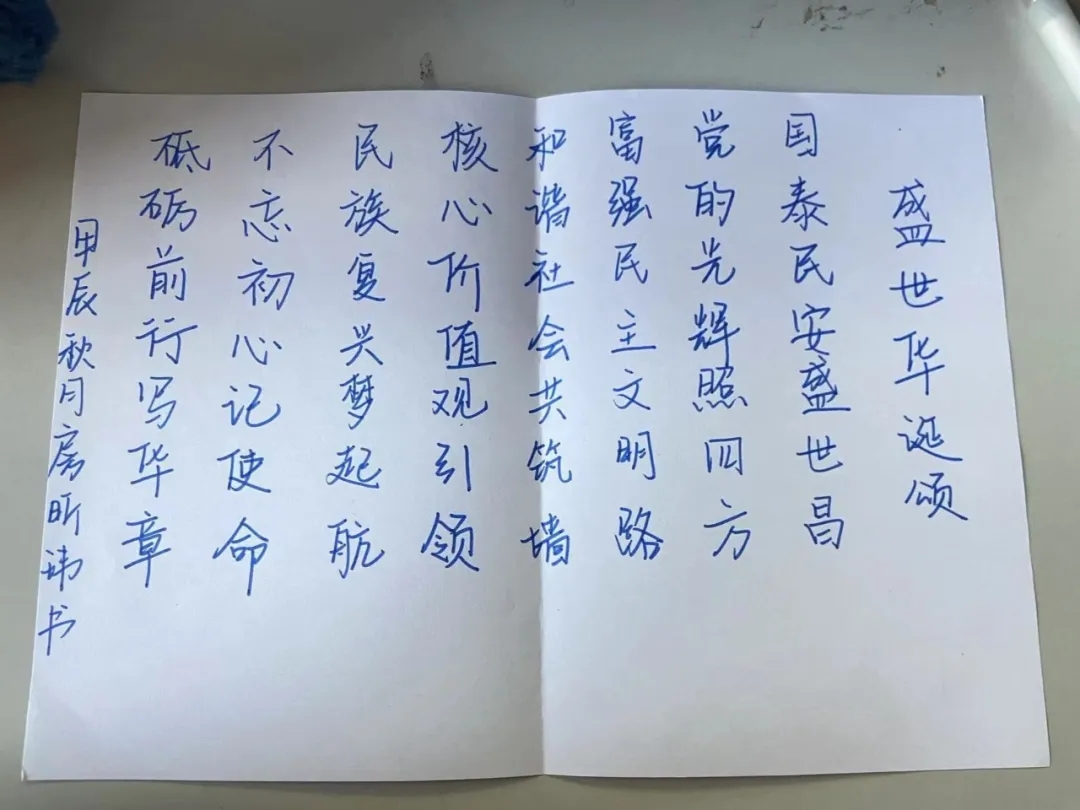 盛世华诞颂
国泰民安盛世昌
党的光辉照四方
富强民主文明路
和谐社会共筑墙
核心价值观引领
民族复兴梦起航
不忘初心记使命
砥砺前行写华章
甲辰秋月房昕讳书